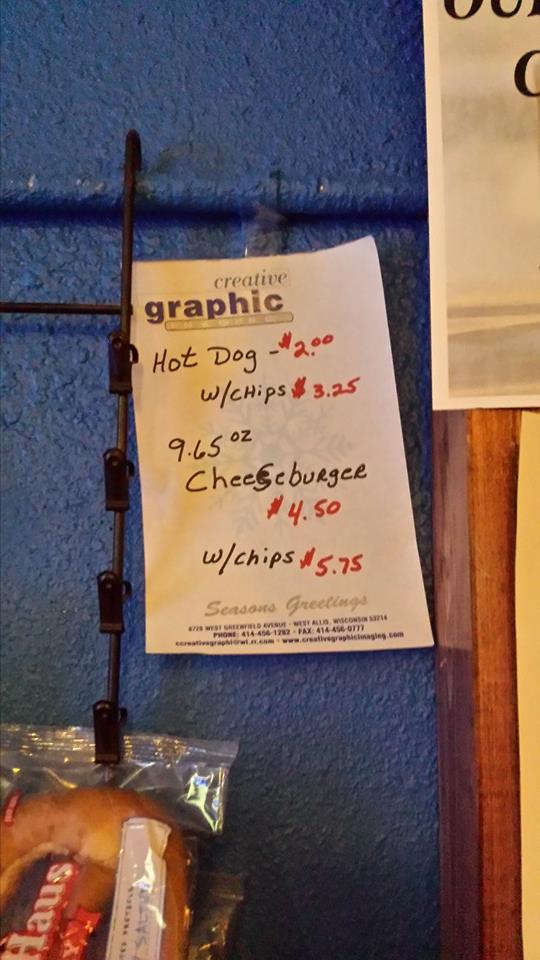 creative
graphic
Hot Dog - $2.00
w/CHips $3.25
9.65 oz
Cheeseburger
$4.50
w/chips $5.75
Seasons Greetings
6729 WEST GREENFIELD AVENUE · WEST ALLIS, WISCONSIN 53214
PHONE: 414-456-1282 · FAX: 414-456-0777
ccreativegraphi@wi.rr.com · www.creativegraphicimaging.com
Haus